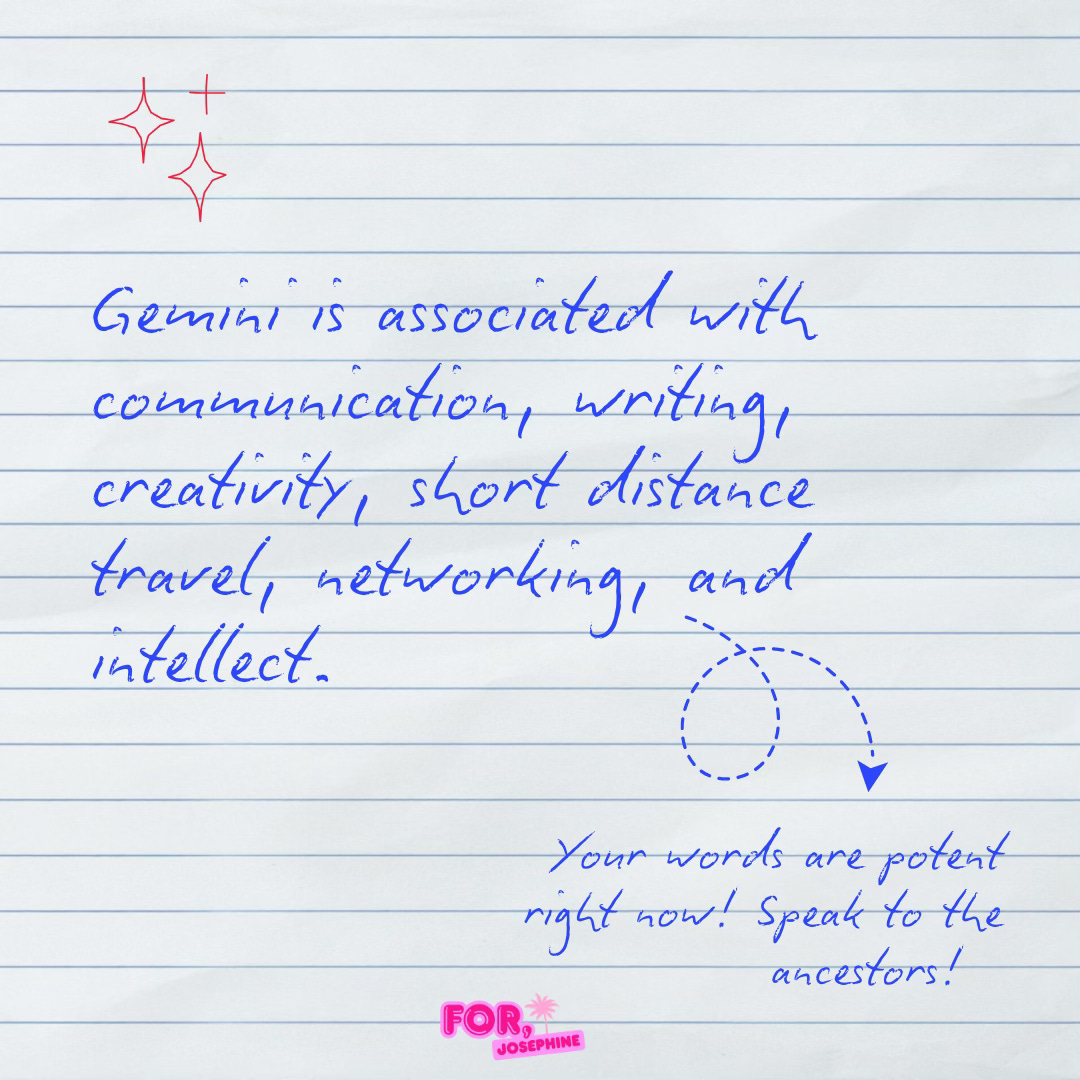 Gemini is associated with
communication, writing,
creativity, short distance
travel, networking, and
intellect.
Your words are potent
right now! Speak to the
ancestors!
FOR,
JOSEPHINE